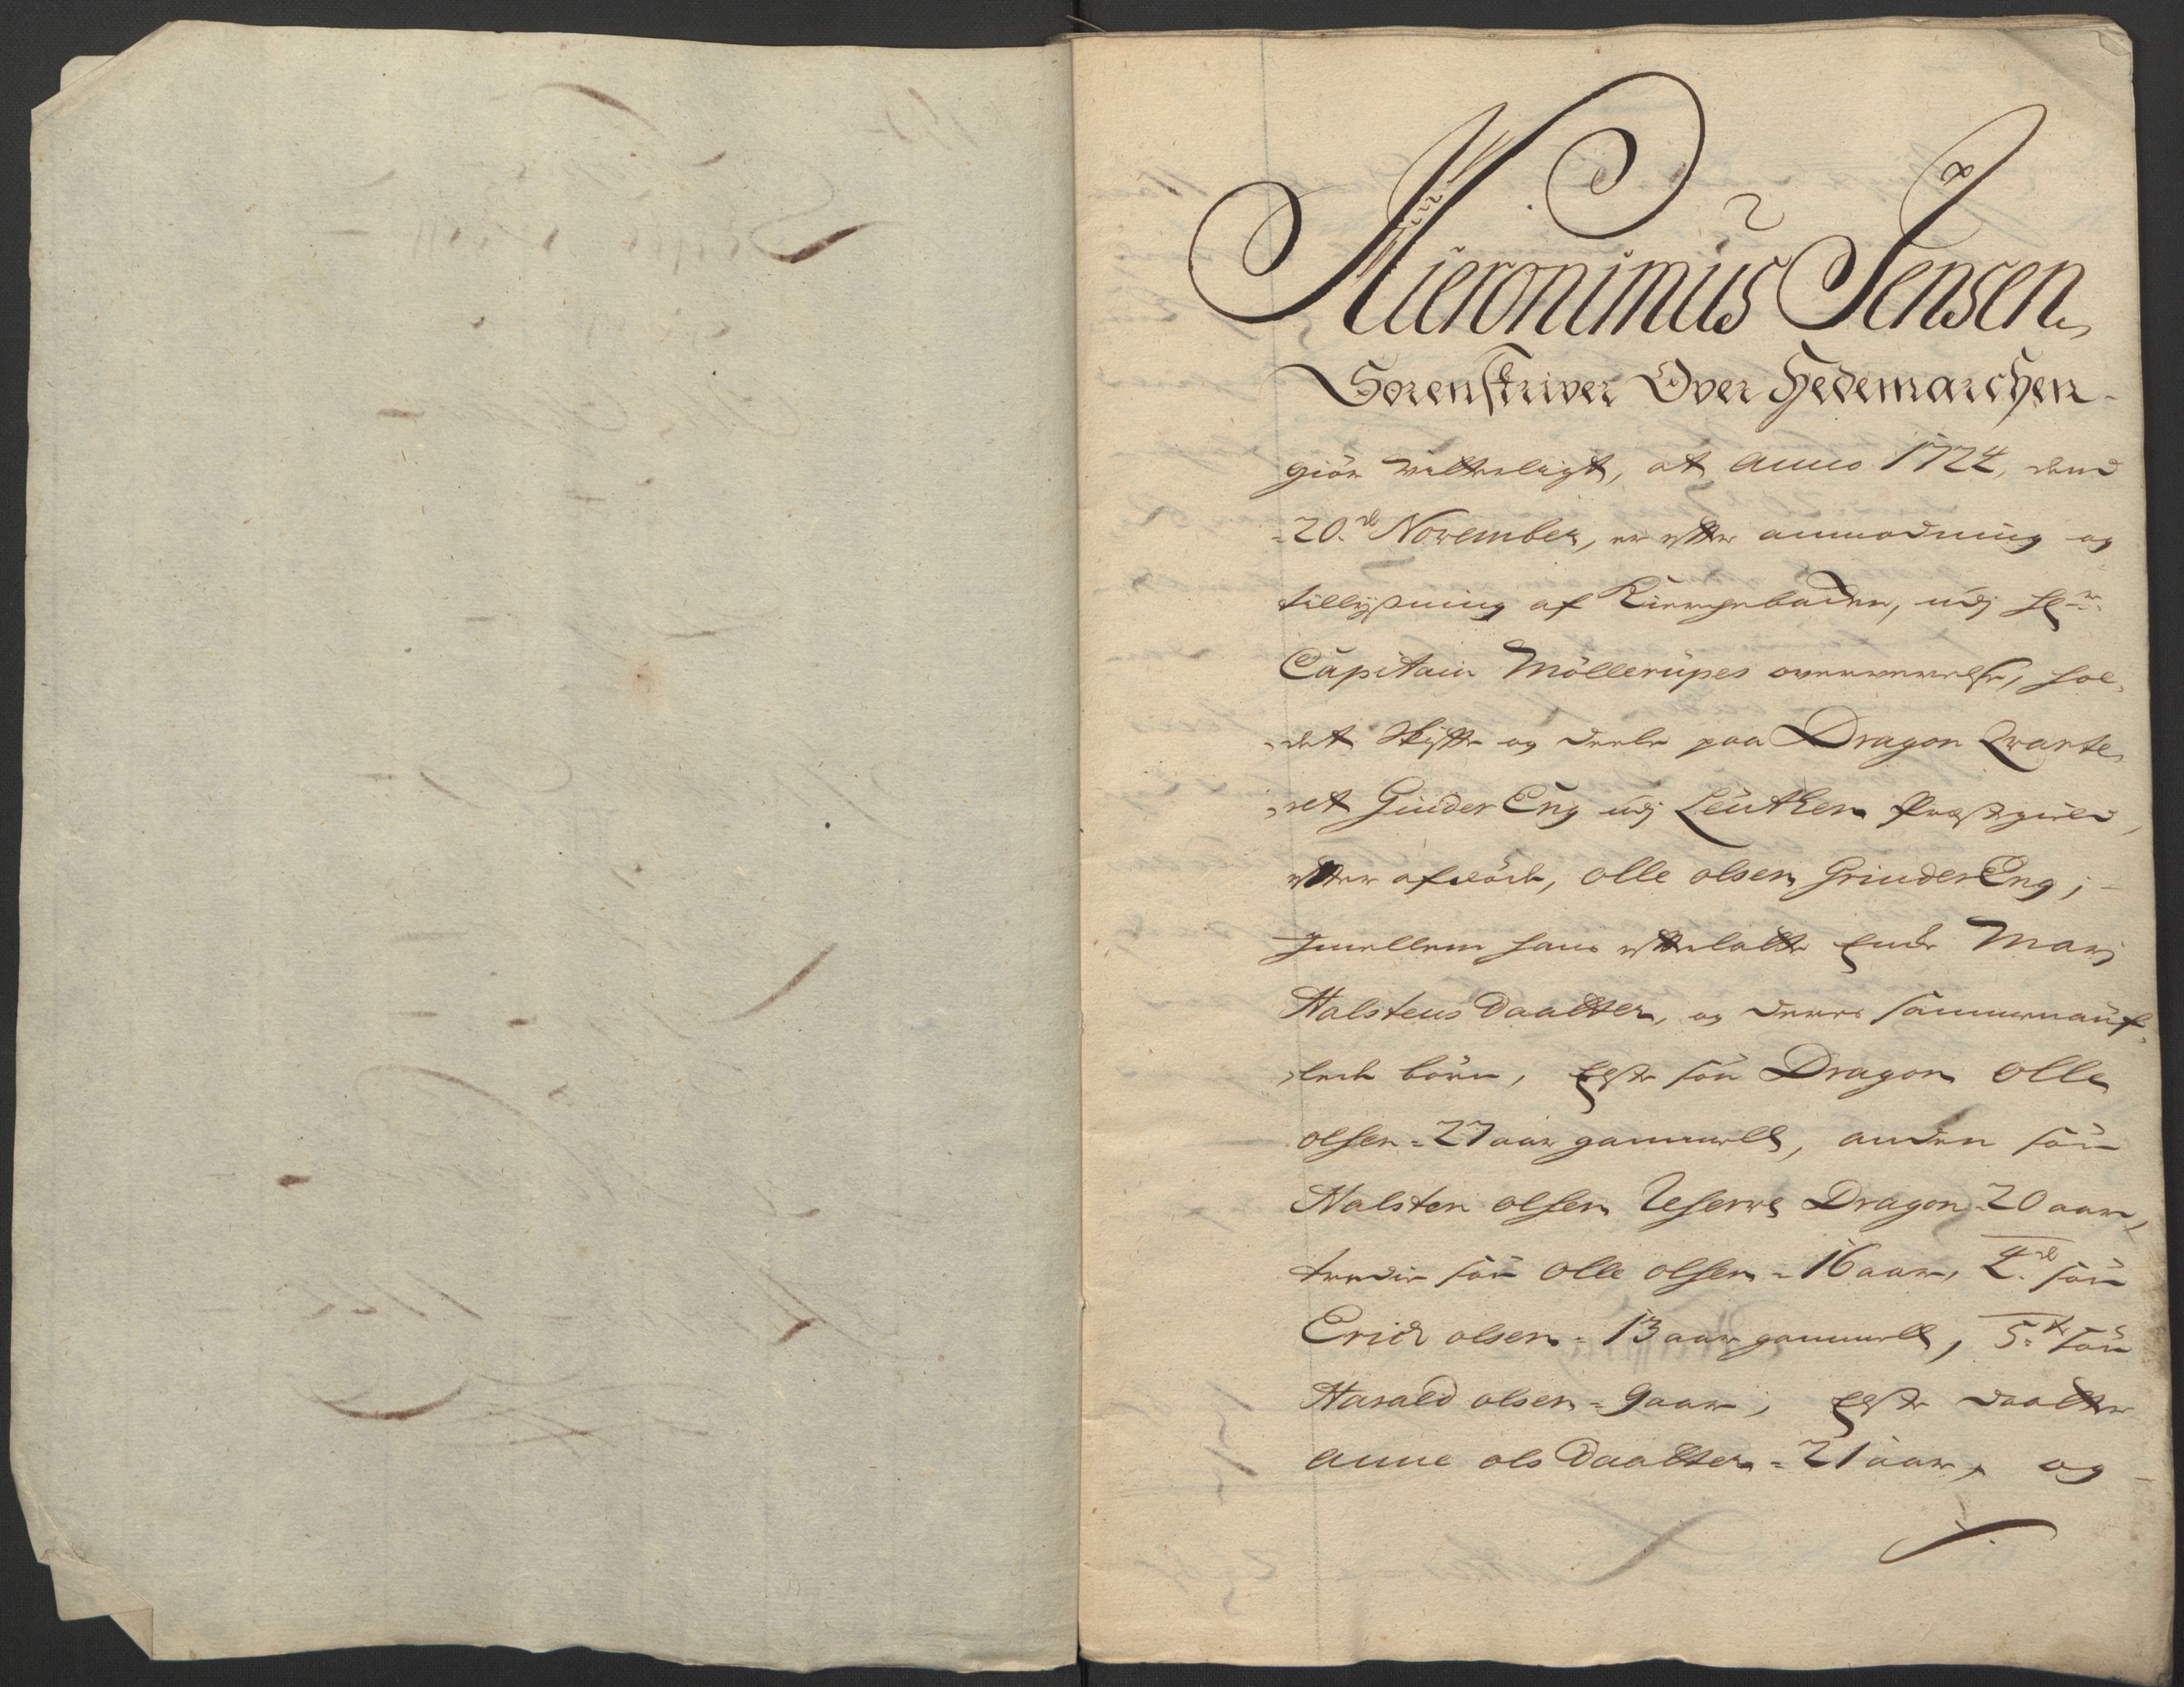 Hieronimus Jensen,
Sorenskriver Over Hedemarchen
giör vitterligt, at Anno 1724, dend
20.de November, er efter anmodning og
tillysning af Kierchebaden, udj Hr
Capitain Möllerupes overværelse, hol-
-det Skifte og deele paa Dragon Qvarte-
-ret GrinderEng udj Leuthen Præstegield,
efter afdöde, Olle olsen GrinderEng;
Jmellem hans efterlatte Encke Marj
Halstens Daatter, og deres sammenauf-
-lede börn, Elste sön Dragon Olle
olsen = 27 aar gammell, anden sön
Halsten olsen Reserve Dragon = 20 aar,
tredie sön Olle olsen = 16 aar, 4.de sön
Erich olsen = 13 aar gammell, 5.te sön
Harald olsen = 9 aar; Elste daatter
Anne ols Daatter = 21 aar, og